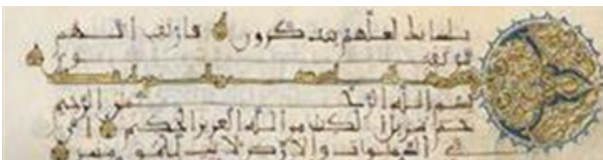 بلسانك لعلهم يتذكرون فارتقب انهم
مرتقبون
بسم الله الرحمن الرحيم
حم تنزيل الكتب من الله العزيز الحكيم ان
في السموت والارض لايت للمومنين